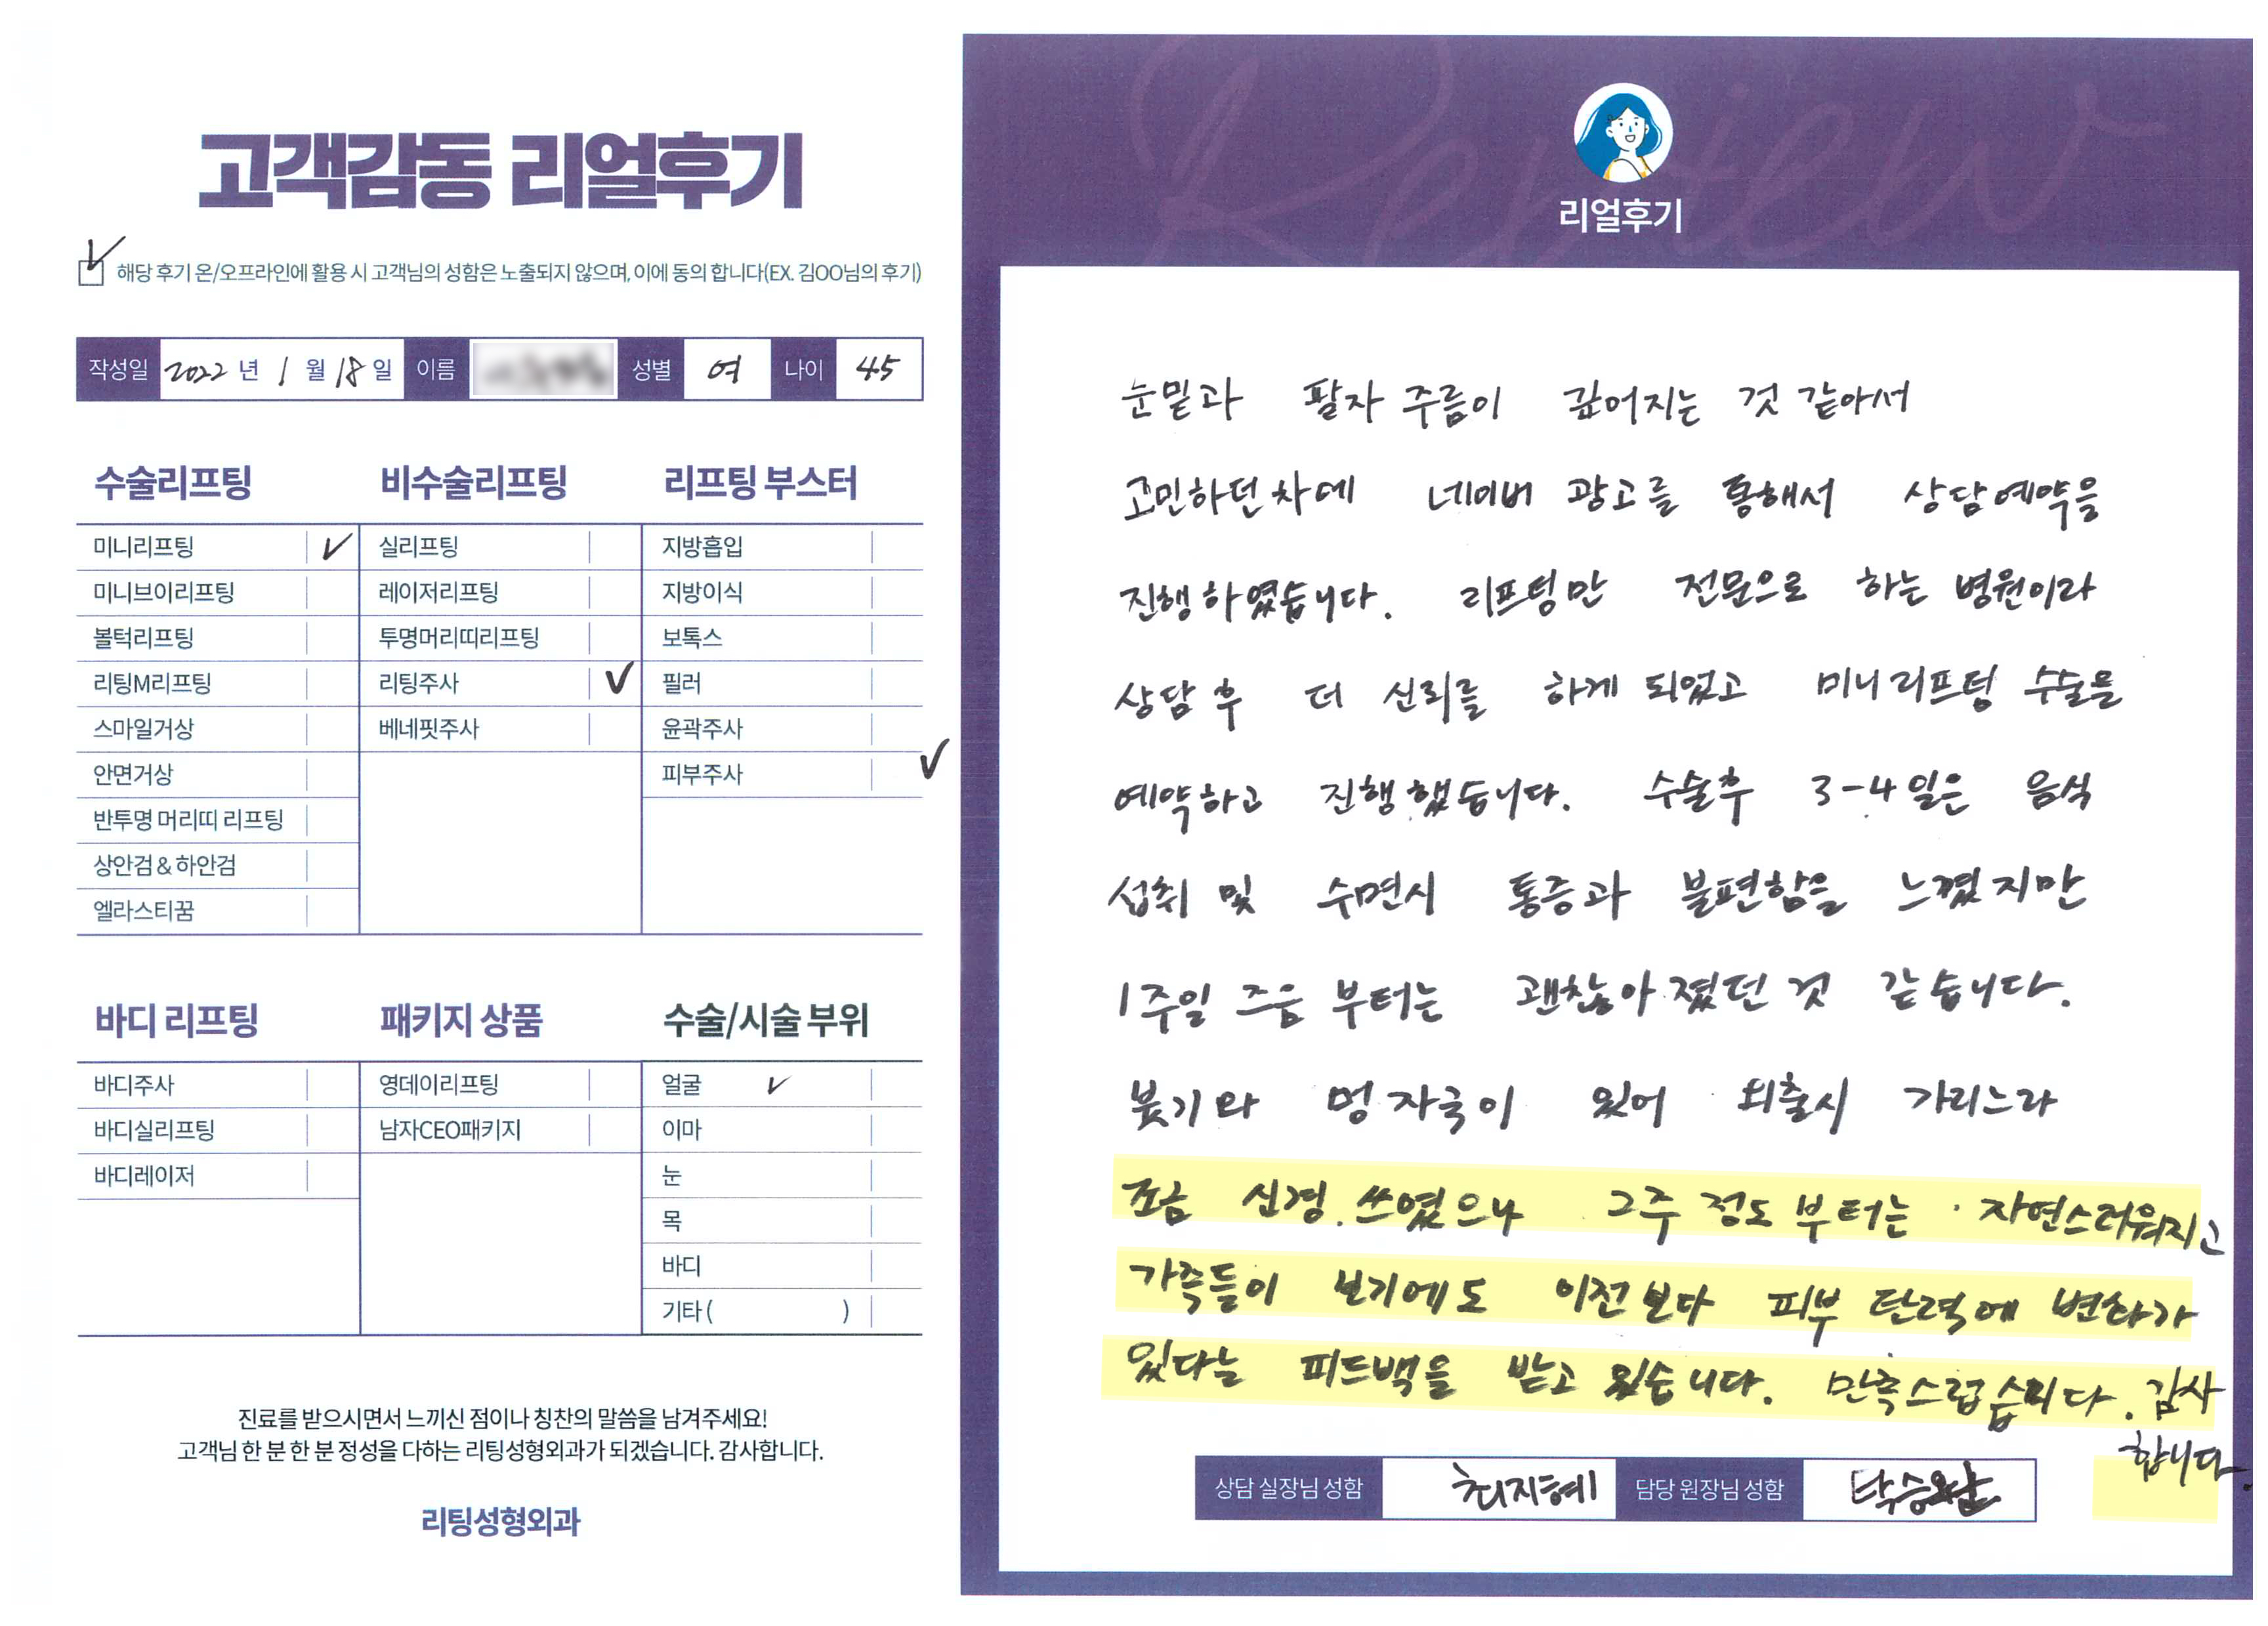 고객감동 리얼후기
해당 후기 온/오프라인에 활용 시 고객님의 성함은 노출되지 않으며, 이에 동의 합니다(EX. 김OO님의 후기)
작성일 2022 년 1 월 18 일 이름 성별 여 나이 45
수술리프팅 비수술리프팅 리프팅 부스터
미니리프팅 실리프팅 지방흡입
미니브이리프팅 레이저리프팅 지방이식
볼턱리프팅 투명머리띠리프팅 보톡스
리팅M리프팅 리팅주사 필러
스마일거상 베네핏주사 윤곽주사
안면거상 피부주사
반투명 머리띠 리프팅
상안검 & 하안검
엘라스티꿈
바디 리프팅 패키지 상품 수술/시술 부위
바디주사 영데이리프팅 얼굴
바디실리프팅 남자CEO패키지 이마
바디레이저 눈
목
바디
기타 ( )
진료를 받으시면서 느끼신 점이나 칭찬의 말씀을 남겨주세요!
고객님 한 분 한 분 정성을 다하는 리팅성형외과가 되겠습니다. 감사합니다.
리팅성형외과
Review
리얼후기
눈밑과 팔자 주름이 깊어지는 것 같아서
고민하던 차에 네이버 광고를 통해서 상담예약을
진행하였습니다. 리프팅만 전문으로 하는 병원이라
상담 후 더 신뢰를 하게 되었고 미니리프팅 수술을
예약하고 진행했습니다. 수술후 3-4일은 음식
섭취 및 수면시 통증과 불편함을 느꼈지만
1주일 즈음 부터는 괜찮아졌던 것 같습니다.
붓기와 멍 자국이 있어 외출시 가리느라
조금 신경 쓰였으나 2주 정도 부터는 자연스러워지고
가족들이 보기에도 이전보다 피부 탄력에 변화가
있다는 피드백을 받고 있습니다. 만족스럽습니다. 감사
합니다.
상담 실장님 성함 최지혜 담당 원장님 성함